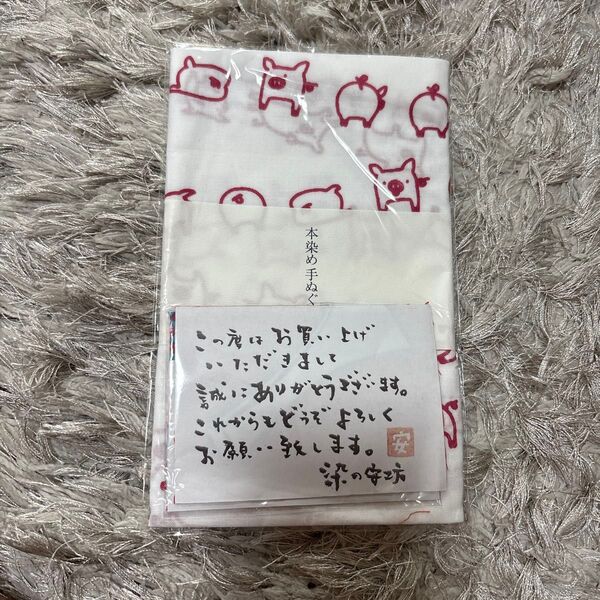 本染め手ぬぐ
この度はお買い上げ
いただきまして
誠にありがとうございます。
これからもどうぞよろしく
お願い致します。
安
染の安坊